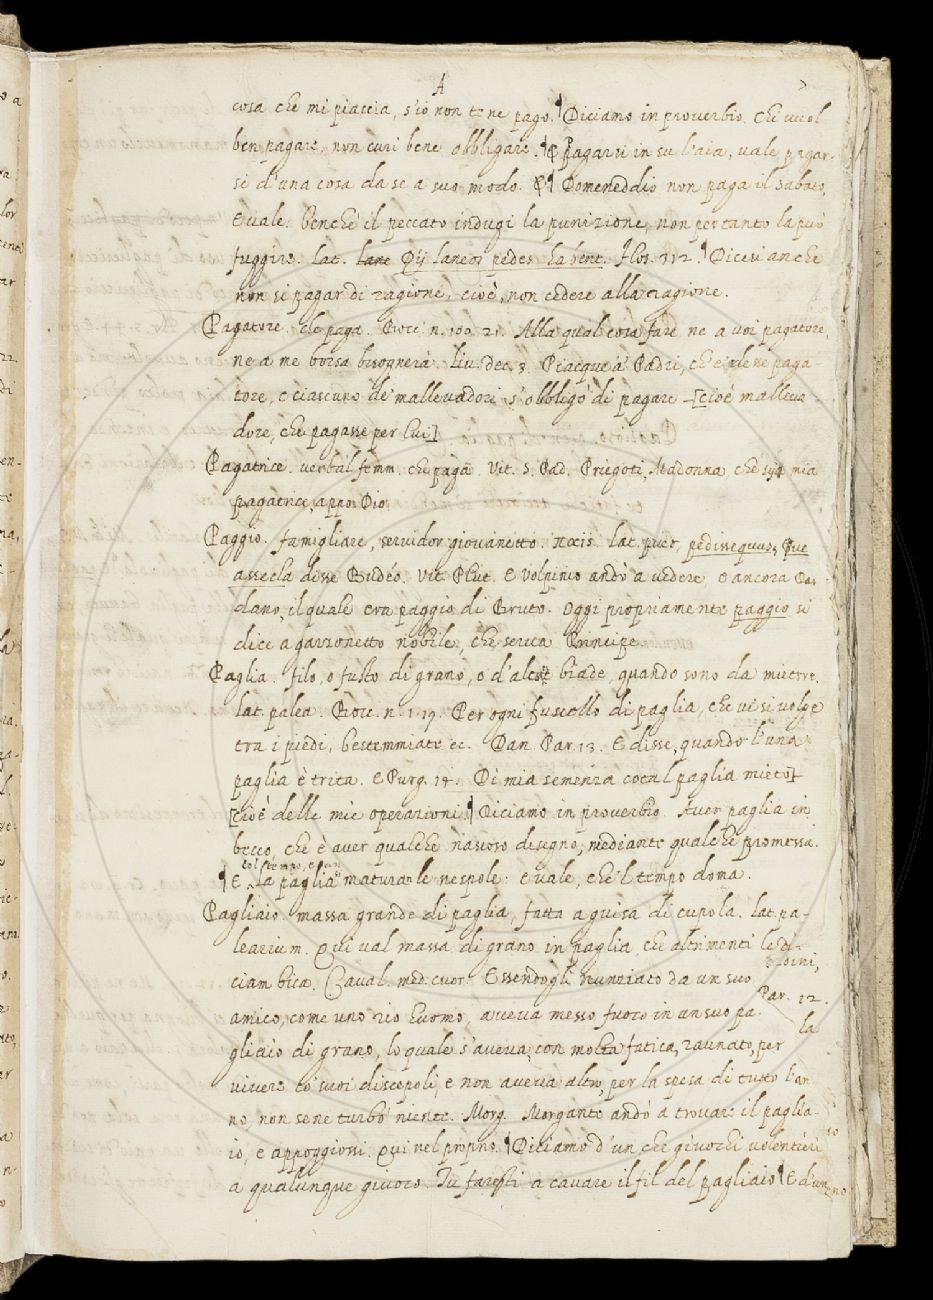 A
cosa che mi piaccia, s'io non te ne pago. ¶ Diciamo in proverbio. Chi vuol
ben pagare, non curi bene obbligare. ¶ E Pagarsi in su l'aia, vale pagar-
si d'una cosa da se a suo modo. ¶ Domeneddio non paga il Sabato,
E vale. benchè il peccato indugi la punizione, non pertanto la può
fuggire. Lat. Dij laneos pedes habent. Flos. 312. ¶ Dicesi anche
non si pagar di ragione, cioè, non cedere alla ragione.
Pagatore. che paga. Bocc. n. 100. 21. Alla qual cosa fare ne a voi pagatore,
ne a me borsa bisognerà. Liv. dec. 3. Piacque a' Padri, ch'e' ne paga-
tore, e ciascuno de' mallevadori s'obbligò di pagare [cioè malleva-
dore, che pagasse per lui]
Pagatrice. verbal femm. che paga. Vit. S. Pad. Priegoti, Madonna, che mia
pagatrice, appo Dio.
Paggio. famigliare, servidor giovanetto. παῖς. lat. puer, pedissequus,
assecla disse Budéo. Vit. Plut. E Volpinio andò a vedere, e ancora Dar-
dano, il quale era paggio di Bruto. Oggi propriamente paggio si
dice a garzonetto nobile, che serva Principe.
Paglia. filo, o fusto di grano, o d'alcune biade, quando sono da mietere.
lat. palea. Bocc. n. 1. 19. Per ogni fuscello di paglia, che vi si volge
tra i piedi, bestemmiate ec. Dan. Par. 13. E disse, quando l'una
paglia è trita. E Purg. 14. Di mia semenza cotal paglia mieto]
[cioè delle mie operazioni. ¶ Diciamo in proverbio. Aver paglia in
becco, che è aver qualche nascoso disegno, mediante qualche promessa.
col tempo, e con
¶ E la paglia maturan le nespole: e vale, che'l tempo doma.
Pagliaio. massa grande di paglia, fatta a guisa di cupola. lat. pa-
learium. Qui val massa di grano in paglia, che altrimenti le di-
ciam bica. Caval. med. cuor. Essendogli nunziato da un suo
Par. 12.
amico, come uno rio huomo, aveva messo fuoco in un suo pa-
la
gliaio di grano, lo quale s'aveva, con molta fatica, raunato, per
vivere co' suoi discepoli, e non aveva altro, per la spesa di tutto l'an-
no, non sene turbò niente. Morg. Morgante andò a trovare il paglia-
io, e appoggiossi. Qui nel proprio. ¶ Diciamo d'un che giuochi volentieri
a qualunque giuoco. Tu faresti a cavare il fil del pagliaio ¶ E d'un